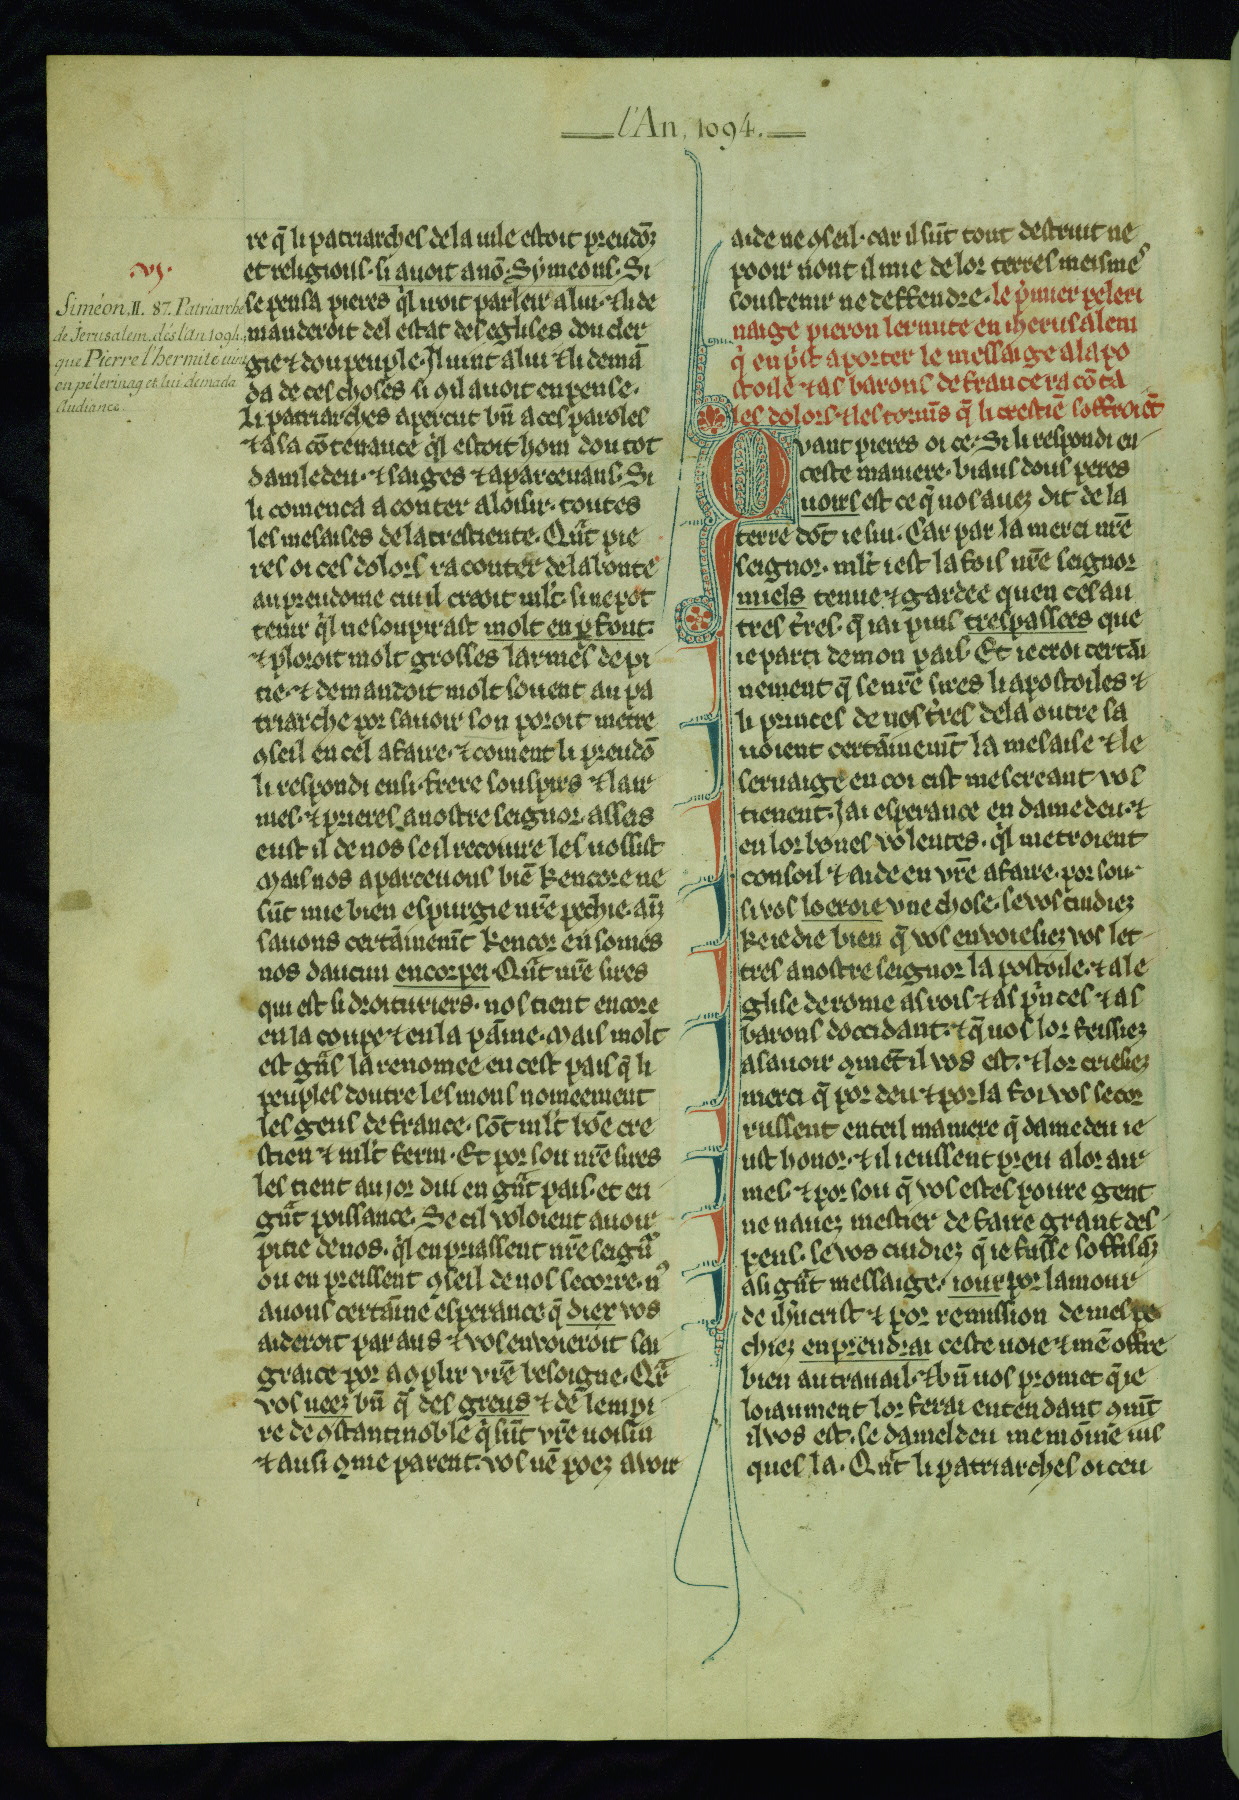 l'An, 1094.
.vj.
Siméon. II. 87. Patriarche
de Jerusalem. dès l'An 1094.
que Pierre l'hermite vint
en pélerinag et lui demāda
Audiance.
re q̄ li patriarches de la uile estoit preudōs
et religious. si auoit anō. Symeons. Si
se pensa pieres q̓l iroit parleir a lui. ⁊ li de
manderoit del estat des eglises dou cler
gie ⁊ dou peuple. Il uint a lui ⁊ li demā
da de ces choses si ꝯ il auoit en pense.
Li patriarches apercut bn̄ a ces paroles
⁊ a la cōtenance q̓l estoit hom dou tot
damledeu. ⁊ saiges ⁊ aparceuans. Si
li comenca a conter a loisir. toutes
les mesaises de la crestiente. Qūt pie
res oi ces dolors raconter de la bonte
au preudome cui il creoit ml̓t. si ne pot
tenir q̓l ne soupirast molt en ꝑfont.
⁊ ploroit molt grosses larmes de pi
tie. ⁊ demandoit molt souent au pa
triarche por sauoir son poroit metre
ꝯseil en cel afaire. ⁊ coment li preudō
li respondi ensi. frere souspirs ⁊ lair
mes. ⁊ prieres a nostre seignor. asseis
eust il de nos se il recoiure les uossist
Mais nos aparceuons biē kencore ne
sūt mie bien espurgie nr̄e pechie. aīz
sauons certāinemt̄ kencor en somes
nos daucun encorpei. Qūt nr̄e sires
qui est si droituriers. nos tient encore
en la coupe ⁊ en la pāine. Mais molt
est gn̄s la renomee en cest pais q̄ li
peuples doutre les mons nomeement
les gens de france. sōt ml̓t bōe cre
stien ⁊ ml̓t ferm. Et por sou nr̄e sires
les tient au jor dui en gn̄t pais. et en
gn̄t poissance. Se cil voloient auoir
pitie de nos. q̓l en priassent nr̄e seign̓
ou en preissent ꝯseil de nos secorre. n̓
auons certāine esperance q̄ diex vos
aideroit par aus ⁊ vos enuoieroit sai
graice por aꝯplir vr̄e besoigne. Qr̄
vos ueez bn̄ q̄ des greus ⁊ de lempi
re de ꝯstantinoble q̓ sūt vr̄e uoisin
⁊ ausi ꝯme parent. vos nē poez avoir
aide ne ꝯseil. car il sūt tout destruit ne
pooir nont il mie de lor terres meismes
soustenir ne deffendre. le p̓mier peleri
naige pieron lermite en iherusalem
q̓ en p̓st a porter le messaige a lapo
stoile ⁊ as barons de france racōta
les dolors ⁊ les tormēs q̄ li crestiē soffroiēt
Qvant pieres oi ce. Si li respondi en
ceste maniere. biaus dous peres
uoirs est ce q̄ uos auez dit de la
terre dōt ie sui. Car par la merci nr̄e
seignor. ml̓t i est la fois nr̄e seignor
miels tenue ⁊ gardee quen ces au
tres t̓res. q̄ iai puis trespassees que
ie parti de mon pais. Et ie croi certāi
nement q̄ se nr̄e sires li apostoiles ⁊
li princes de nos t̓res de la outre sa
uoient certāinemt̄ la mesaise ⁊ le
seruaige en coi cist mescreant vos
tienent. Jai esperance en damedeu. ⁊
en lor bones volentes. q̓l metroient
consoil ⁊ aide en vr̄e afaire. por sou
si vos loeroie vne chose. se vos cuidiez
ke ie die bien q̄ vos enuoiesiez vos let
tres a nostre seignor lapostoile. ⁊ a le
glise de rome as rois ⁊ as p̓nces ⁊ as
barons doccidant. ⁊ q̄ uos lor feissiez
asauoir ꝯmēt il vos est. ⁊ lor criesiez
merci q̄ por deu ⁊ por la foi vos secor
russent en teil maniere q̄ damedeu i e
ust honor. ⁊ il i eussent preu a lor air
mes. ⁊ por sou q̄ vos estes poure gent
ne nauez mestier de faire grant des
pens. se vos cuidiez q̄ ie fusse soffisāz
a si gn̄t messaige. iour por lamour
de ih̓ucrist ⁊ por remission de mes pe
chiez en prendrai ceste uoie ⁊ mē offre
bien au trauail. ⁊ bn̄ uos promet q̄ ie
loiaument lor ferai entendant ꝯmt̄
il vos est. se dameldeu me mōine uis
ques la. Qn̄t li patriarches oi ceu